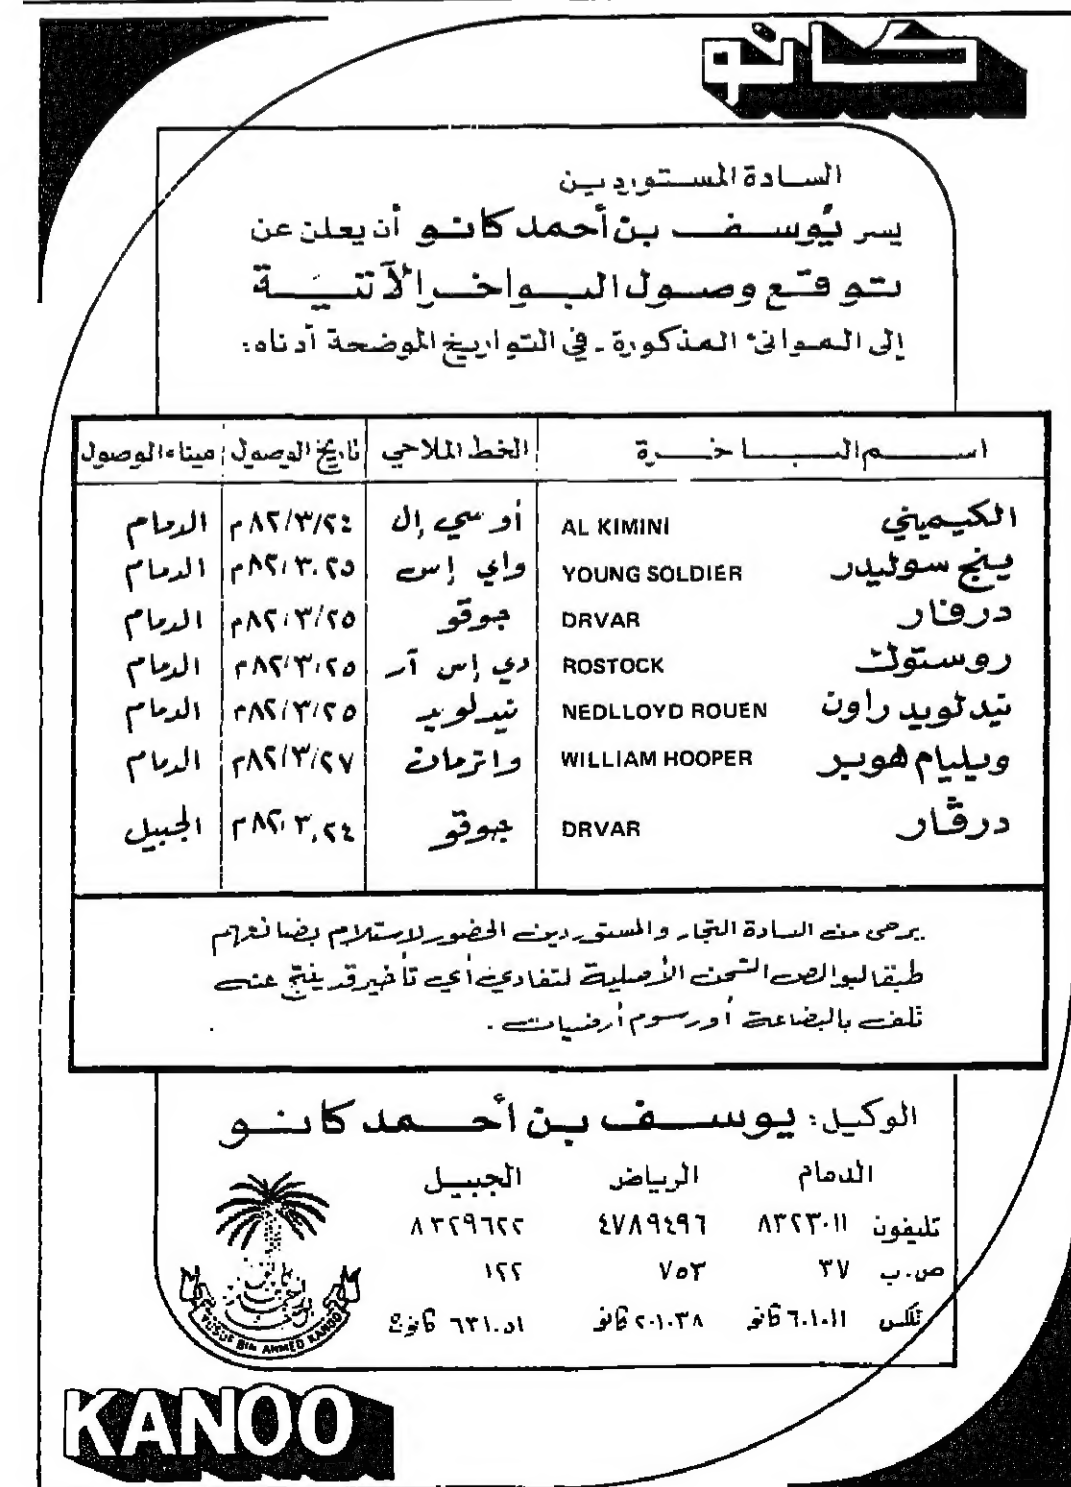 كانو
السادة المستوردين
يسر يوسف بن أحمد كانو أن يعلن عن
توقع وصول البواخر الآتية
إلى الموانئ المذكورة - في التواريخ الموضحة أدناه:
اسم الباخرة الخط الملاحي تاريخ الوصول ميناء الوصول
الكيميني AL KIMINI أو سي إل ٨٢/٣/٢٤م الدمام
ينج سوليدر YOUNG SOLDIER واي إس ٨٢/٣/٢٥م الدمام
درفار DRVAR جوقو ٨٢/٣/٢٥م الدمام
روستوك ROSTOCK دي إس آر ٨٢/٣/٢٥م الدمام
نيدلويد راون NEDLLOYD ROUEN نيدلويد ٨٢/٣/٢٥م الدمام
ويليام هوبر WILLIAM HOOPER واترمان ٨٢/٣/٢٧م الدمام
درڤار DRVAR جوقو ٨٢/٣/٢٤م الجبيل
يرجى من السادة التجار والمستوردين الحضور لاستلام بضائعهم
طبقا لبوالص الشحن الأصلية لتفادي أي تأخير قد ينتج عنه
تلف بالبضاعة أو رسوم أرضيات.
الوكيل: يوسف بن أحمد كانو
الدمام الرياض الجبيل
تليفون ٨٣٢٣٠١١ ٤٧٨٩٤٩٦ ٨٣٢٩٦٢٢
ص.ب ٣٧ ٧٥٣ ١٢٢
تلكس ٦٠١٠١١ كانو ٢٠١٠٣٨ كانو ٦٣١٠٥١ كانوج
YUSUF BIN AHMED KANOO
KANOO